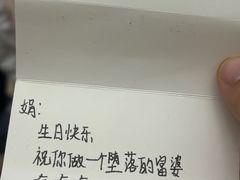 娟：
生日快乐
祝你做一个堕落的富婆